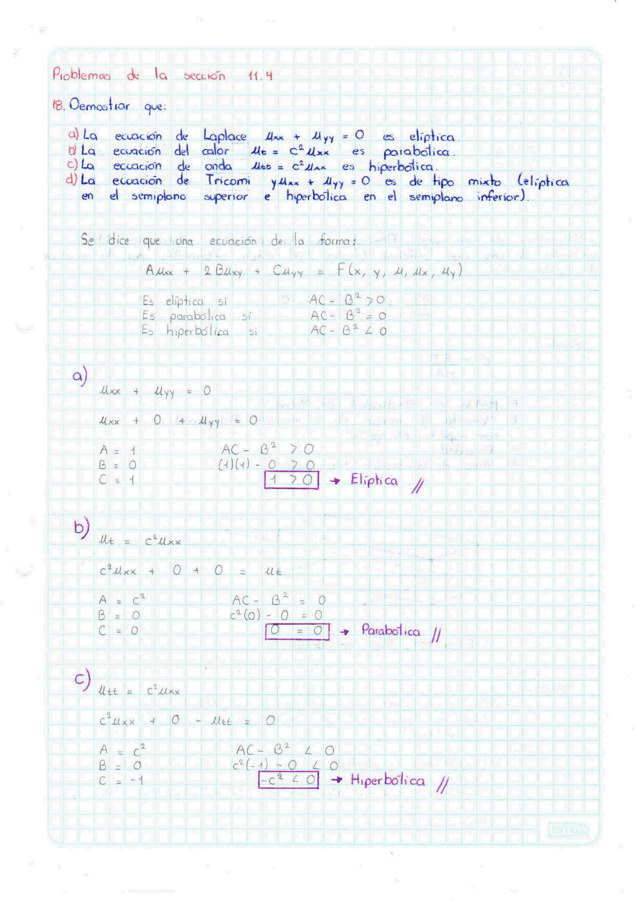 Problemas de la sección 11.4
18. Demostrar que:
a) La ecuación de Laplace uxx + uyy = 0 es elíptica.
b) La ecuación del calor ut = c²uxx es parabólica.
c) La ecuación de onda utt = c²uxx es hiperbólica.
d) La ecuación de Tricomi yuxx + uyy = 0 es de tipo mixto (elíptica
en el semiplano superior e hiperbólica en el semiplano inferior).
Se dice que una ecuación de la forma:
Auxx + 2Buxy + Cuyy = F(x, y, u, ux, uy)
Es elíptica si AC - B² > 0
Es parabólica si AC - B² = 0
Es hiperbólica si AC - B² < 0
a)
uxx + uyy = 0
uxx + 0 + uyy = 0
A = 1 AC - B² > 0
B = 0 (1)(1) - 0 > 0
C = 1 1 > 0 → Elíptica //
b)
ut = c²uxx
c²uxx + 0 + 0 = ut
A = c² AC - B² = 0
B = 0 c²(0) - 0 = 0
C = 0 0 = 0 → Parabólica //
c)
utt = c²uxx
c²uxx + 0 - utt = 0
A = c² AC - B² < 0
B = 0 c²(-1) - 0 < 0
C = -1 -c² < 0 → Hiperbólica //